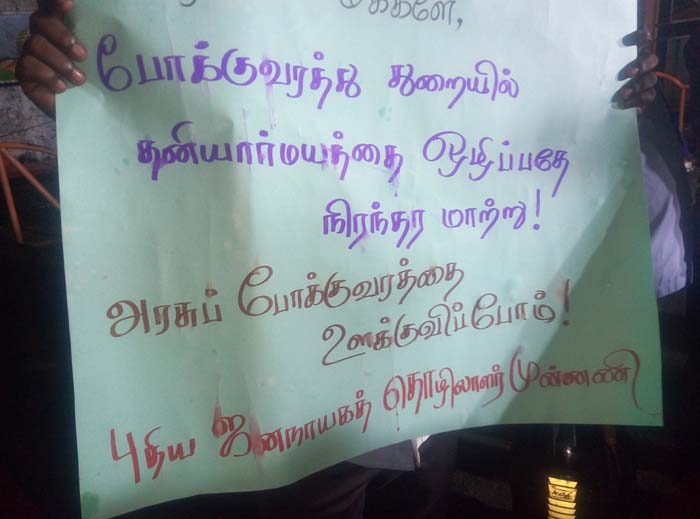 மக்களே,
போக்குவரத்து துறையில்
தனியார்மயத்தை ஒழிப்பதே
நிரந்தர மாற்று!
அரசுப் போக்குவரத்தை
ஊக்குவிப்போம்!
புதிய ஜனநாயகத் தொழிலாளர் முன்னணி